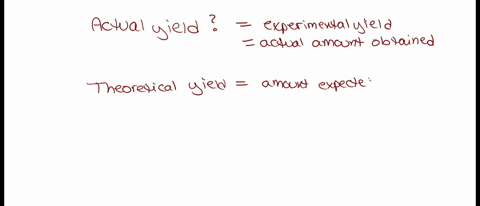 Actual yield ? = experimental yield
= actual amount obtained
Theoretical yield = amount expecte